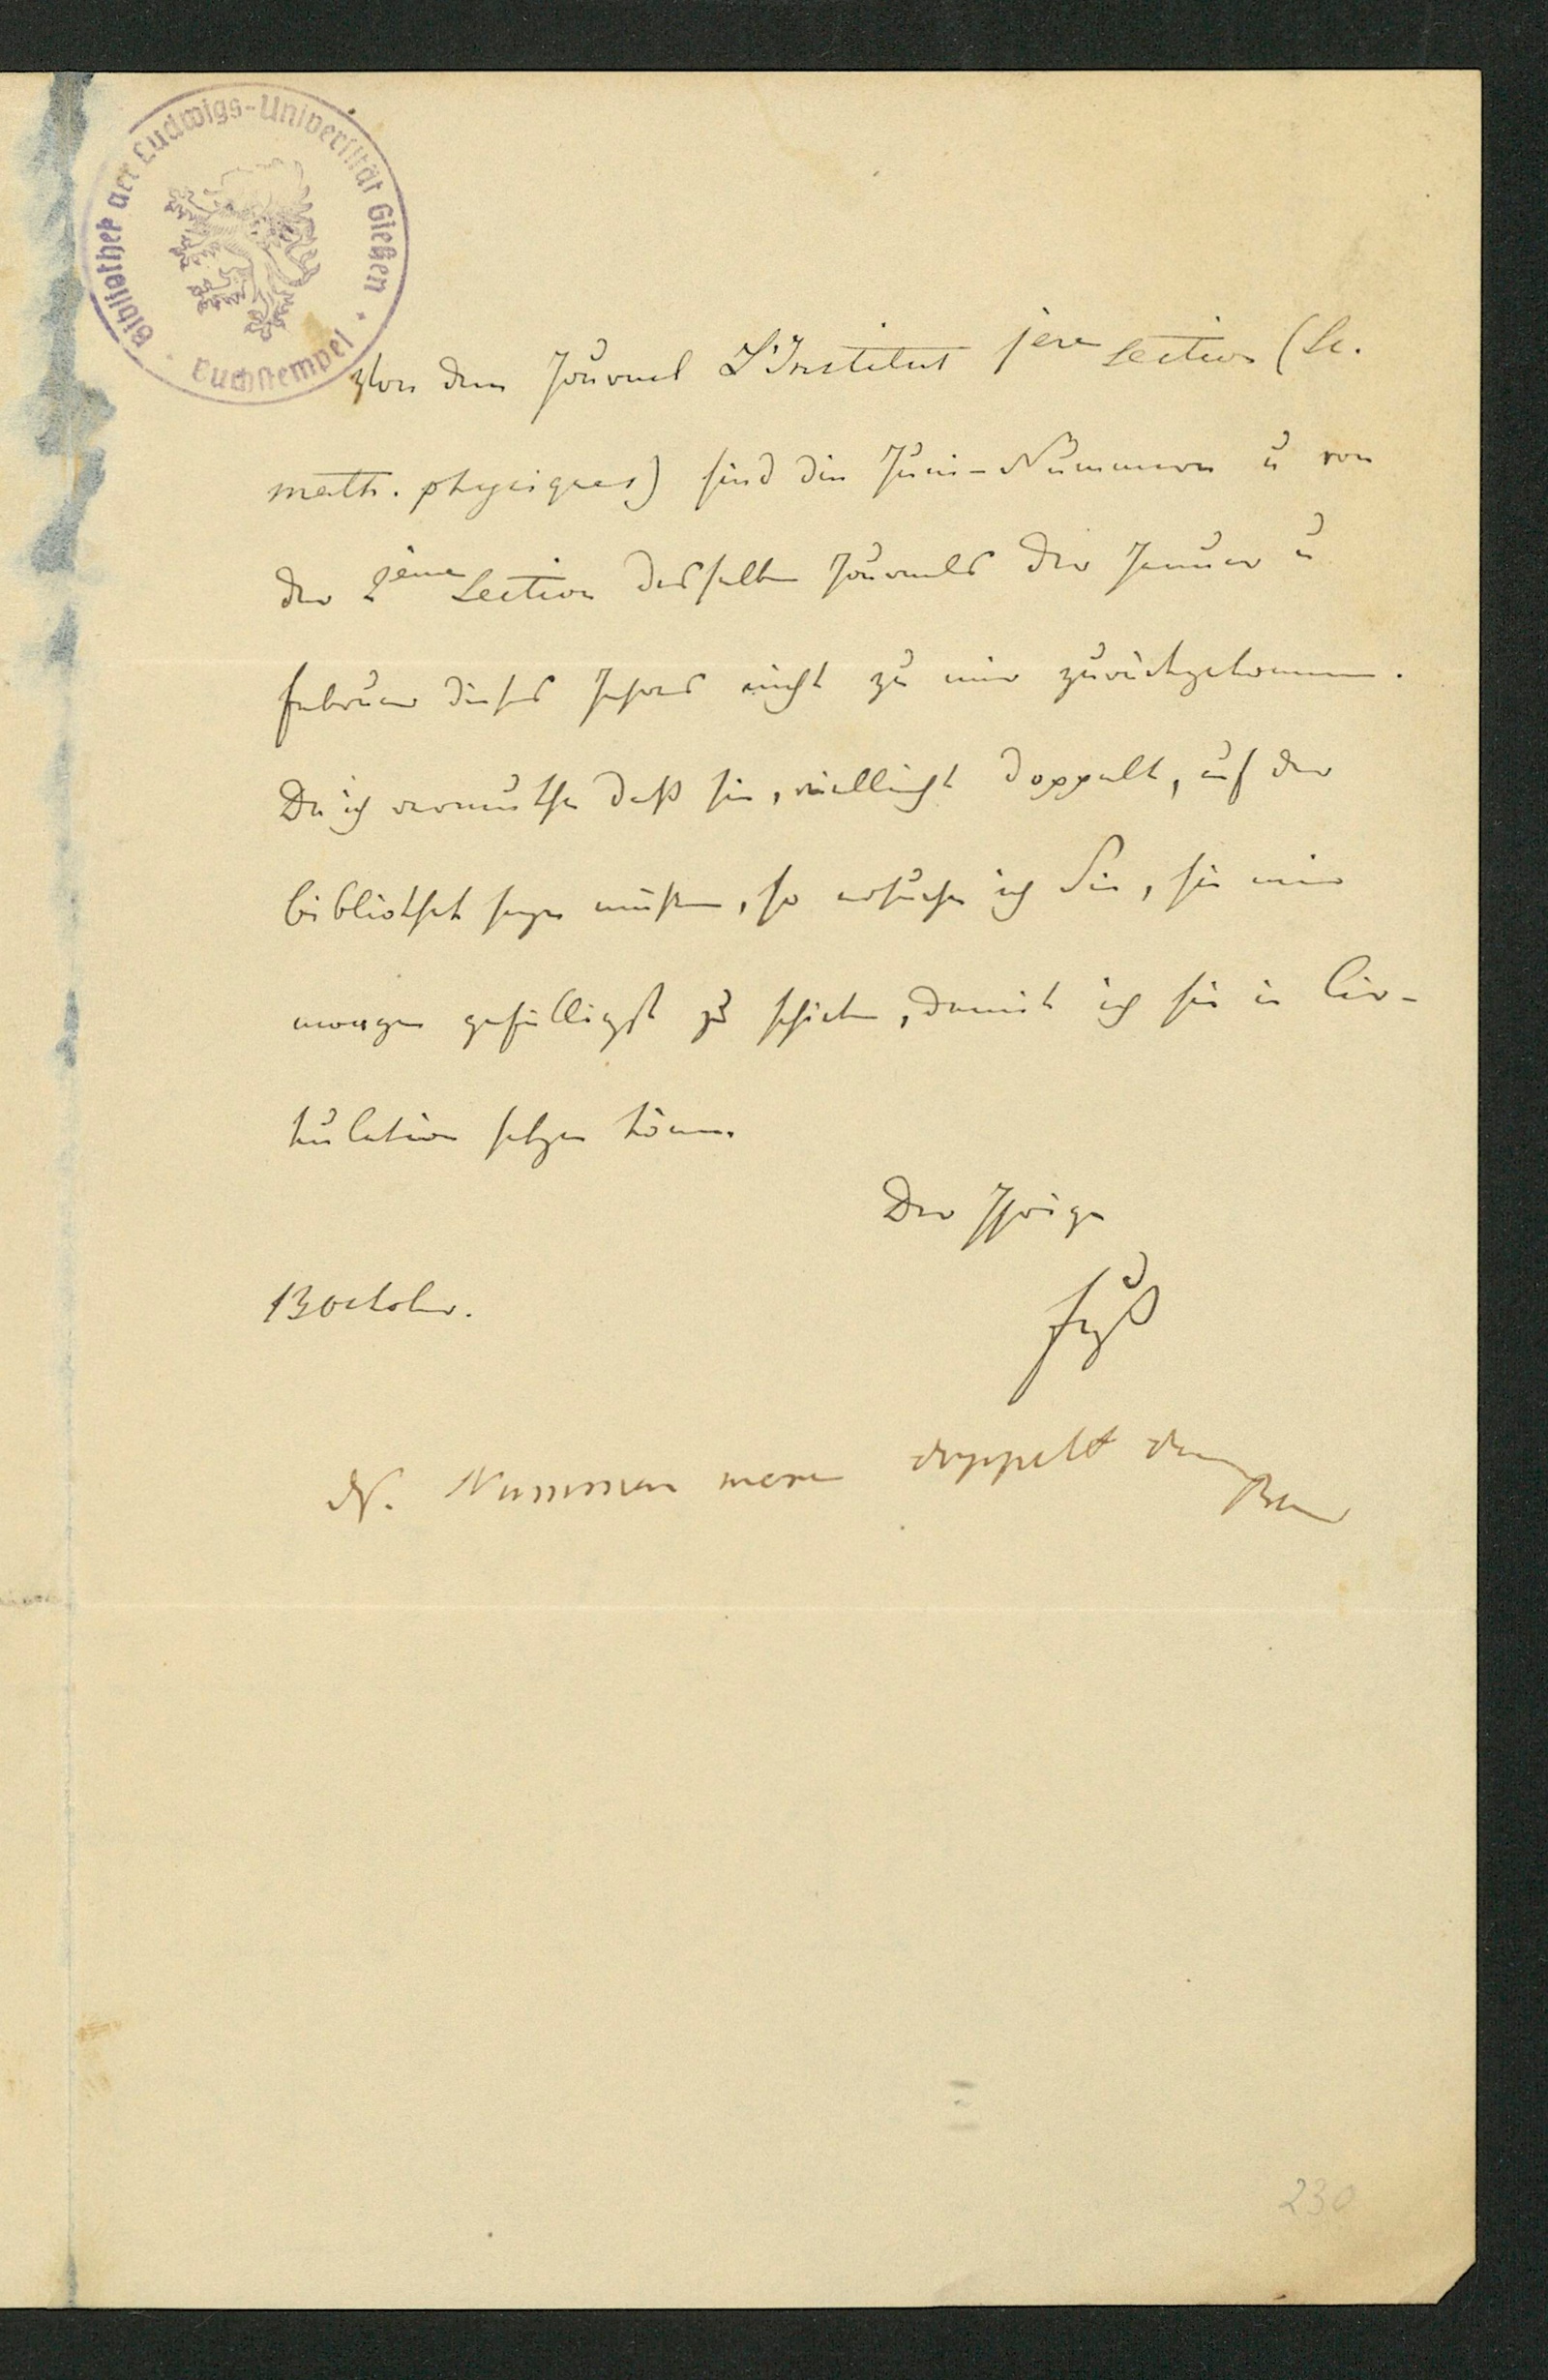 Bibliothek der Ludwigs-Universität Gießen
Buchstempel
Von dem Journal L'Institut 1ere Section (Sc.
math. physiques) sind die Juni-Nummern u von
der 2ieme Section desselben Journals der Januar u
Februar dieses Jahres nicht zu mir zurückgekommen.
Da ich vermuthe daß sie, vielleicht doppelt, auf der
Bibliothek seyn müssen, so ersuche ich Sie, sie mir
morgen gefälligst zu schicken, damit ich sie in Cir-
kulation setzen könne.
Der Ihrige
Fuß
13 October.
N. Nummern waren doppelt
230